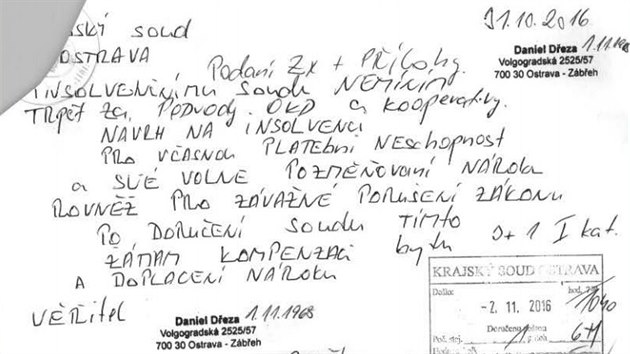 ský soud
31.10.2016
OSTRAVA
Daniel Dřeza 1.11.1968
Volgogradská 2525/57
700 30 Ostrava - Zábřeh
Podaní 2x + PŘÍLOHY.
INSOLVENČNÍMU SOUDU NEMÍNÍM
TRPĚT ZA PODVODY OKD a kooperativy.
NÁVRH NA INSOLVENCI
PRO VČASNOU PLATEBNÍ NESCHOPNOST
a SVÉ VOLNE POZMĚŇOVANÍ NÁROKU
ROVNĚŽ PRO ZÁVAŽNÉ PORUŠENÍ ZÁKONU
PO DORUČENÍ SOUDU TÍMTO
ŽÁDAM KOMPENZACI bytu 3+1 I kat.
A DOPLACENÍ NÁROKU
KRAJSKÝ SOUD OSTRAVA
Došlo: hod.
-2. 11. 2016
Doručeno
VĚŘITEL
Daniel Dřeza 1.11.1968
Volgogradská 2525/57
700 30 Ostrava - Zábřeh